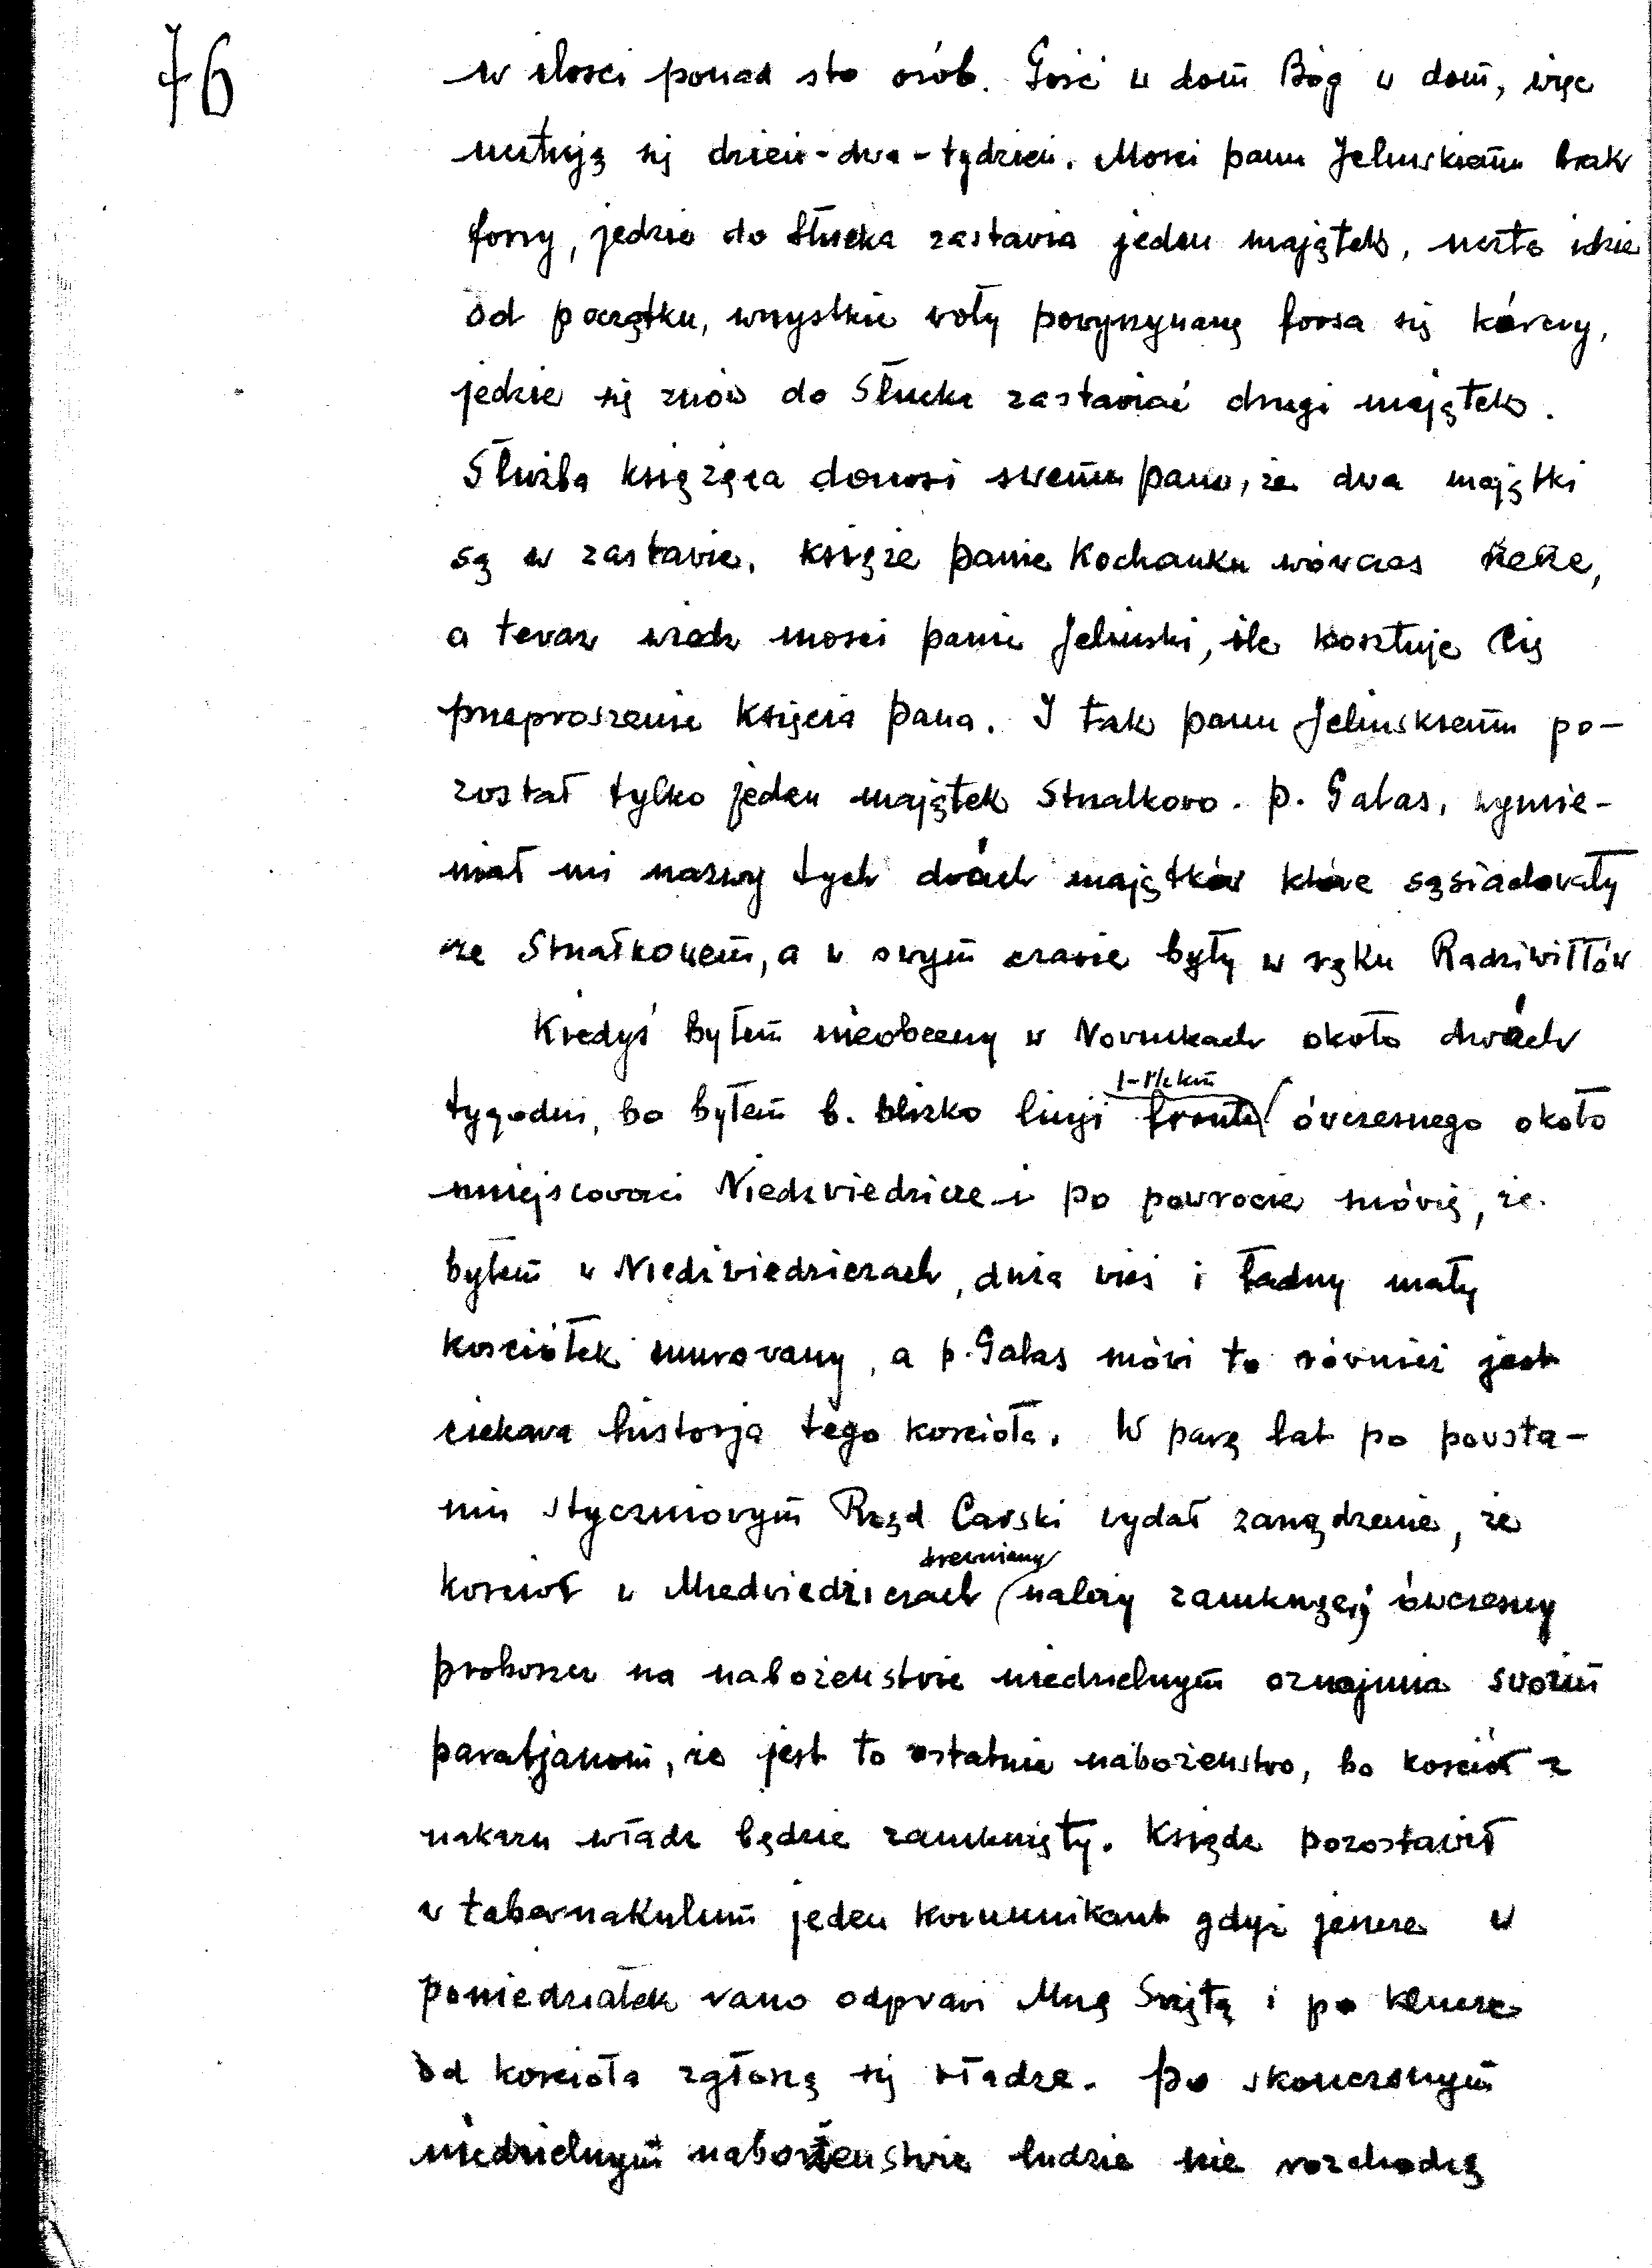 76
w ilości ponad sto osób. Gość w dom Bóg w dom, więc
ucztują się dzień-dwa-tydzień. Mości panu Jeleńskiemu brak
forsy, jedzie do Słucka zastawia jeden majątek, uczta idzie
od początku, wszystkie woły powyżynane forsa się kończy,
jedzie się znów do Słucka zastawiać drugi majątek.
Służba książęca donosi swemu panu, że dwa majątki
są w zastawie. Książe panie Kochanku wówczas rzecze,
a teraz wiedz mości panie Jeleński, ile kosztuje Cię
przeproszenie księcia pana. I tak panu Jeleńskiemu po-
został tylko jeden majątek Strzałkowo. p. Gałas, wymie-
niał mi nazwy tych dwóch majątków które sąsiadowały
ze Strzałkowem, a w swym czasie były w ręku Radziwiłłów
Kiedyś byłem nieobecny w Nowinkach około dwóch
tygodni, bo byłem b. blisko linji frontu ówczesnego około
miejscowości Niedźwiedzice i po powrocie mówię, że
byłem w Niedźwiedzicach, duża wieś i ładny mały
kościółek murowany, a p. Gałas mówi to również jest
ciekawa historja tego kościoła. W parę lat po powsta-
niu styczniowym Rząd Carski wydał zarządzenie, że
drewniany
kościół w Niedźwiedzicach należy zamknąć, ówczesny
proboszcz na nabożeństwie niedzielnym oznajmia swoim
parafjanom, że jest to ostatnie nabożeństwo, bo kościół z
nakazu władz będzie zamknięty. Ksiądz pozostawił
w tabernakulum jeden komunikant gdyż jeszcze w
poniedziałek rano odprawi Mszę Świętą i po klucze
od kościoła zgłoszą się władze. Po skończonym
niedzielnym nabożeństwie ludzie nie rozchodzą